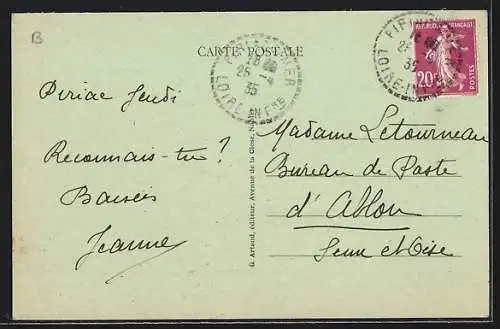 B
CARTE POSTALE
PIRIAC-S-MER
18 30
25 -4
35
LOIRE-INFRE
REPUBLIQUE FRANÇAISE
20c
POSTES
Piriac Jeudi
Reconnais-tu?
Baisers
Jeanne
G. Artaud, éditeur, Avenue de la Close,
Madame Letourneau
Bureau de Poste
d'Ablon
Seine et Oise